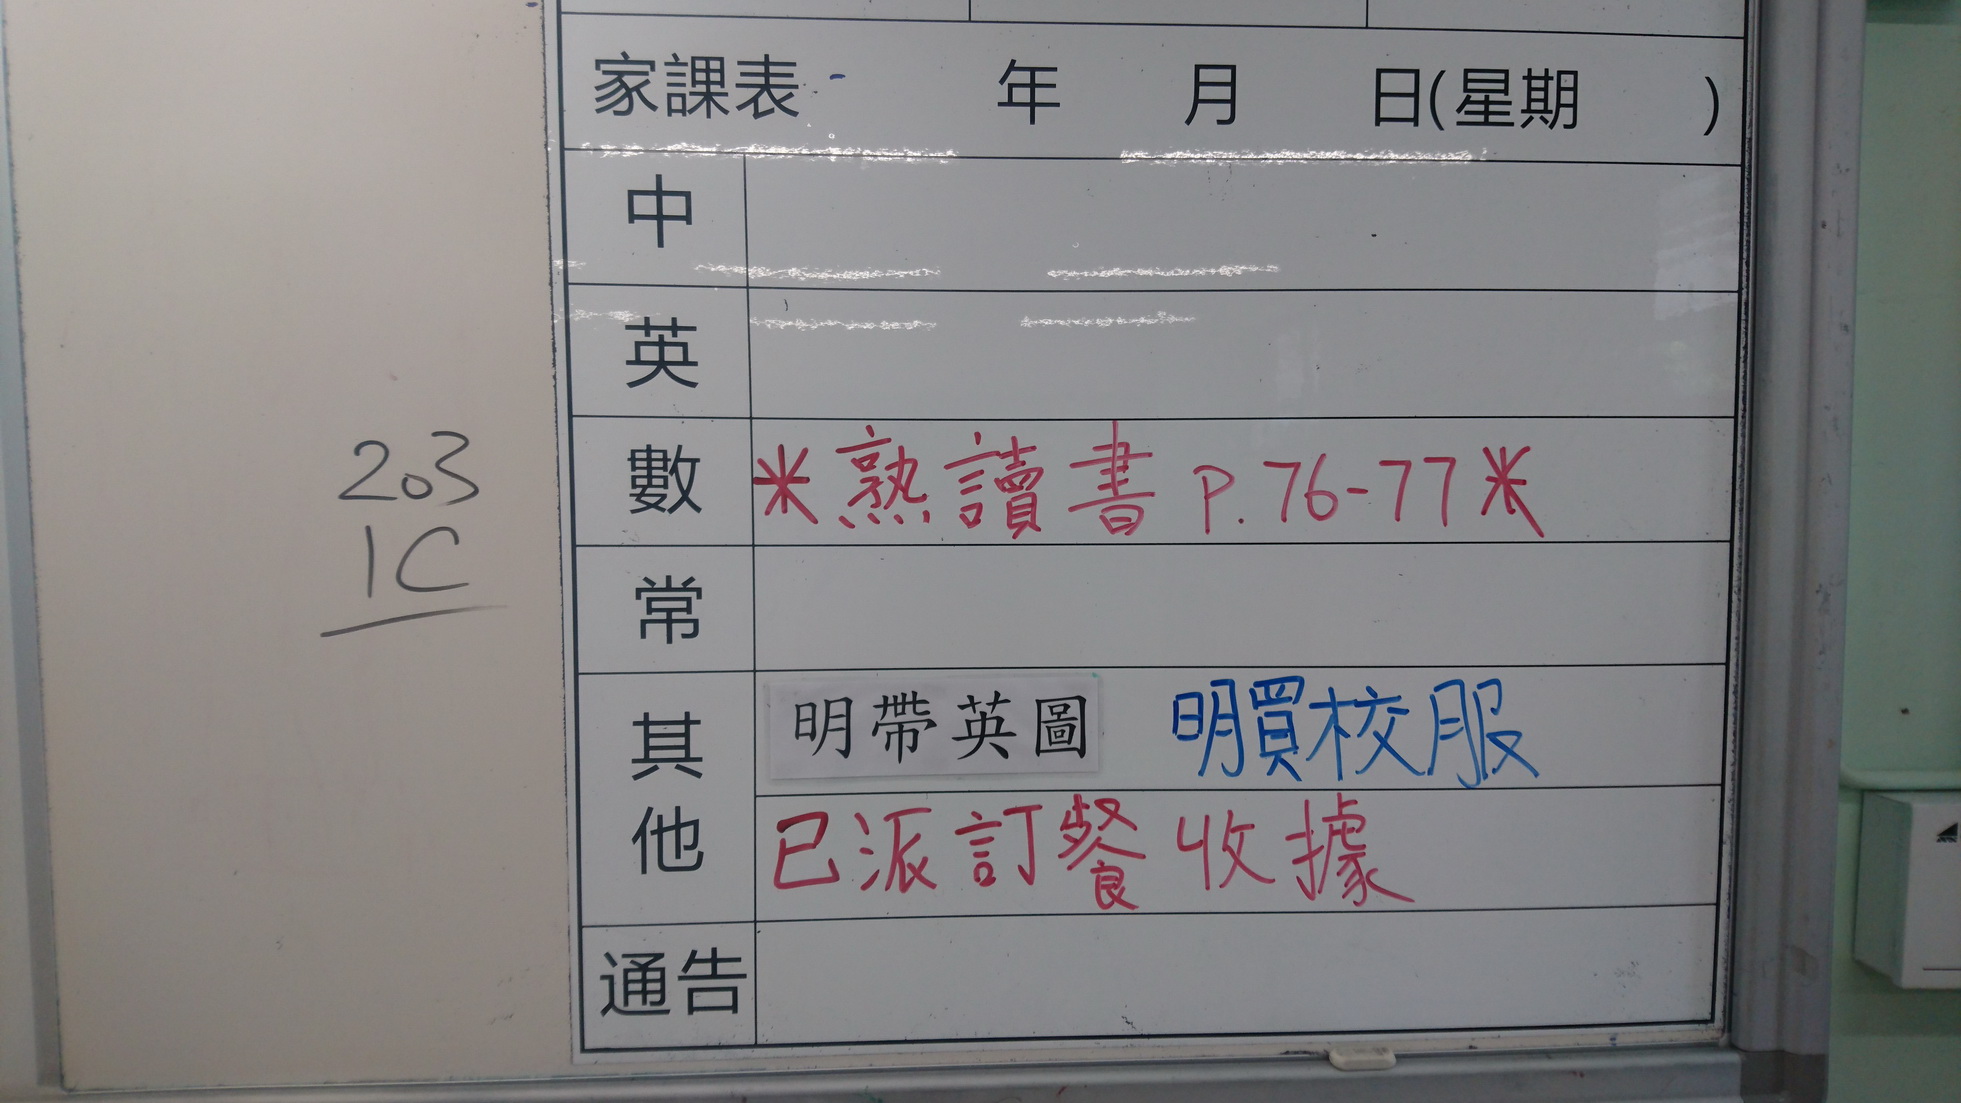 家課表 年 月 日(星期 )
中
英
203
1C
數 *熟讀書 P.76-77*
常
其他 明帶英圖 明買校服
已派訂餐收據
通告